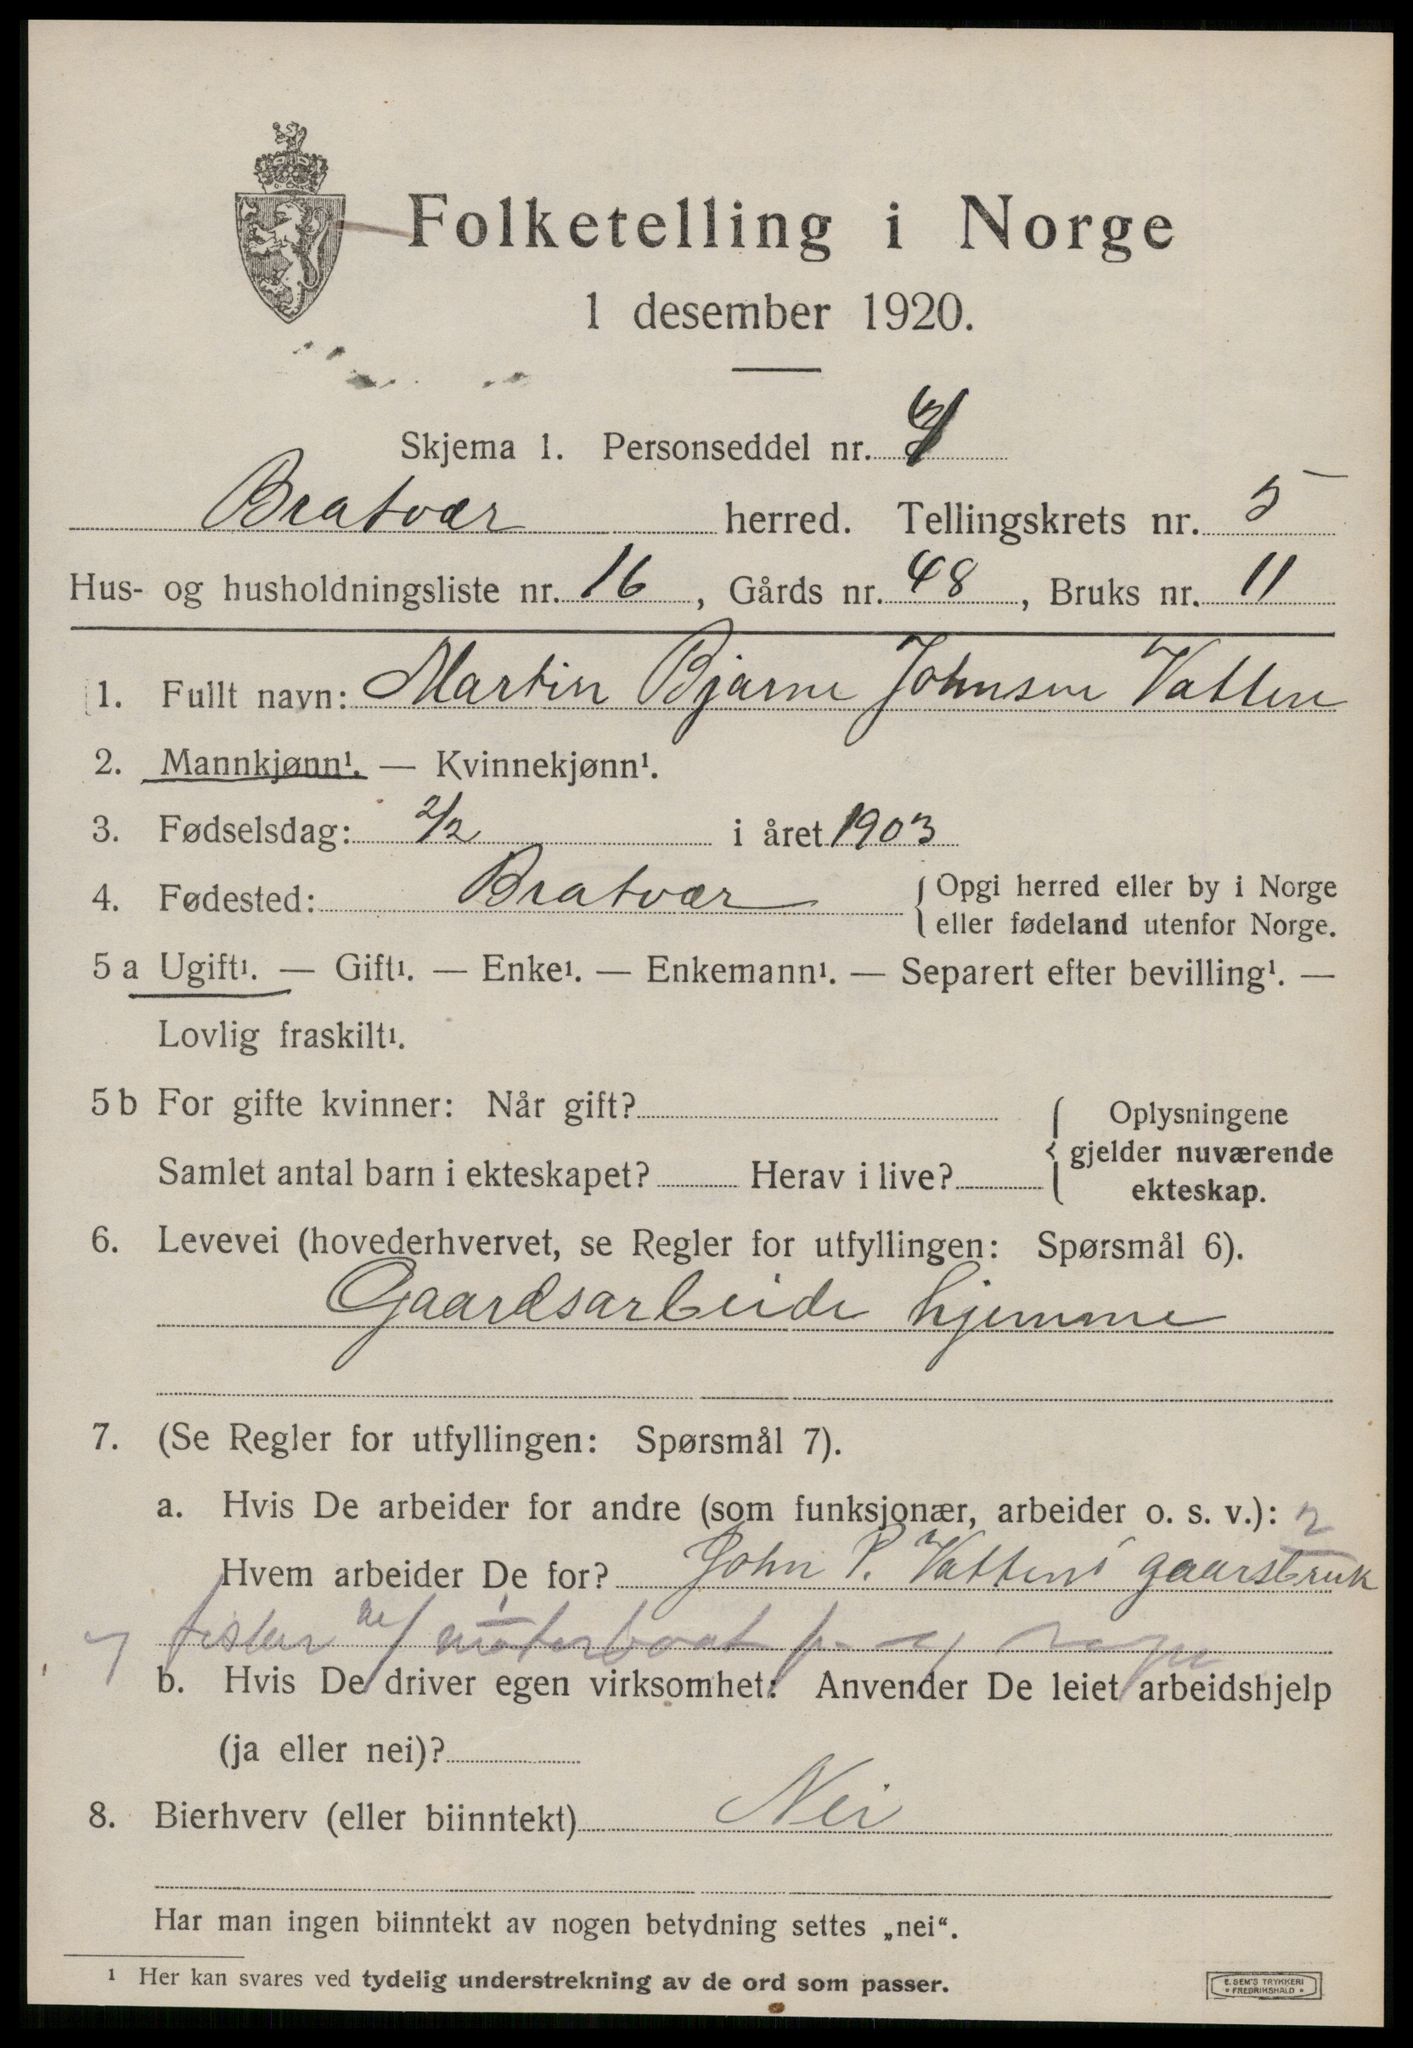 Folketelling i Norge
1 desember 1920.
Skjema 1. Personseddel nr.
Bratvær herred. Tellingskrets nr. 5
Hus- og husholdningsliste nr. 16, Gårds nr. 48, Bruks nr. 11
1. Fullt navn: Martin Bjarne Johnsen Vatten
2. Mannkjønn¹. — Kvinnekjønn¹.
3. Fødselsdag: 2/2 i året 1903
4. Fødested: Bratvær { Opgi herred eller by i Norge
eller fødeland utenfor Norge.
5 a Ugift¹. — Gift¹. — Enke¹. — Enkemann¹. — Separert efter bevilling¹. —
Lovlig fraskilt¹.
5 b For gifte kvinner: Når gift? { Oplysningene
gjelder nuværende
Samlet antal barn i ekteskapet? Herav i live?
ekteskap.
6. Levevei (hovederhvervet, se Regler for utfyllingen: Spørsmål 6).
Gaardsarbeide hjemme
7. (Se Regler for utfyllingen: Spørsmål 7).
a. Hvis De arbeider for andre (som funksjonær, arbeider o. s. v.): 2
Hvem arbeider De for? John P. Vattens gaarsbruk
fisker motorboat
b. Hvis De driver egen virksomhet: Anvender De leiet arbeidshjelp
(ja eller nei)?
8. Bierhverv (eller biinntekt) Nei
Har man ingen biinntekt av nogen betydning settes „nei“.
¹ Her kan svares ved tydelig understrekning av de ord som passer.
E. SEM'S TRYKKERI
* FREDRIKSHALD *